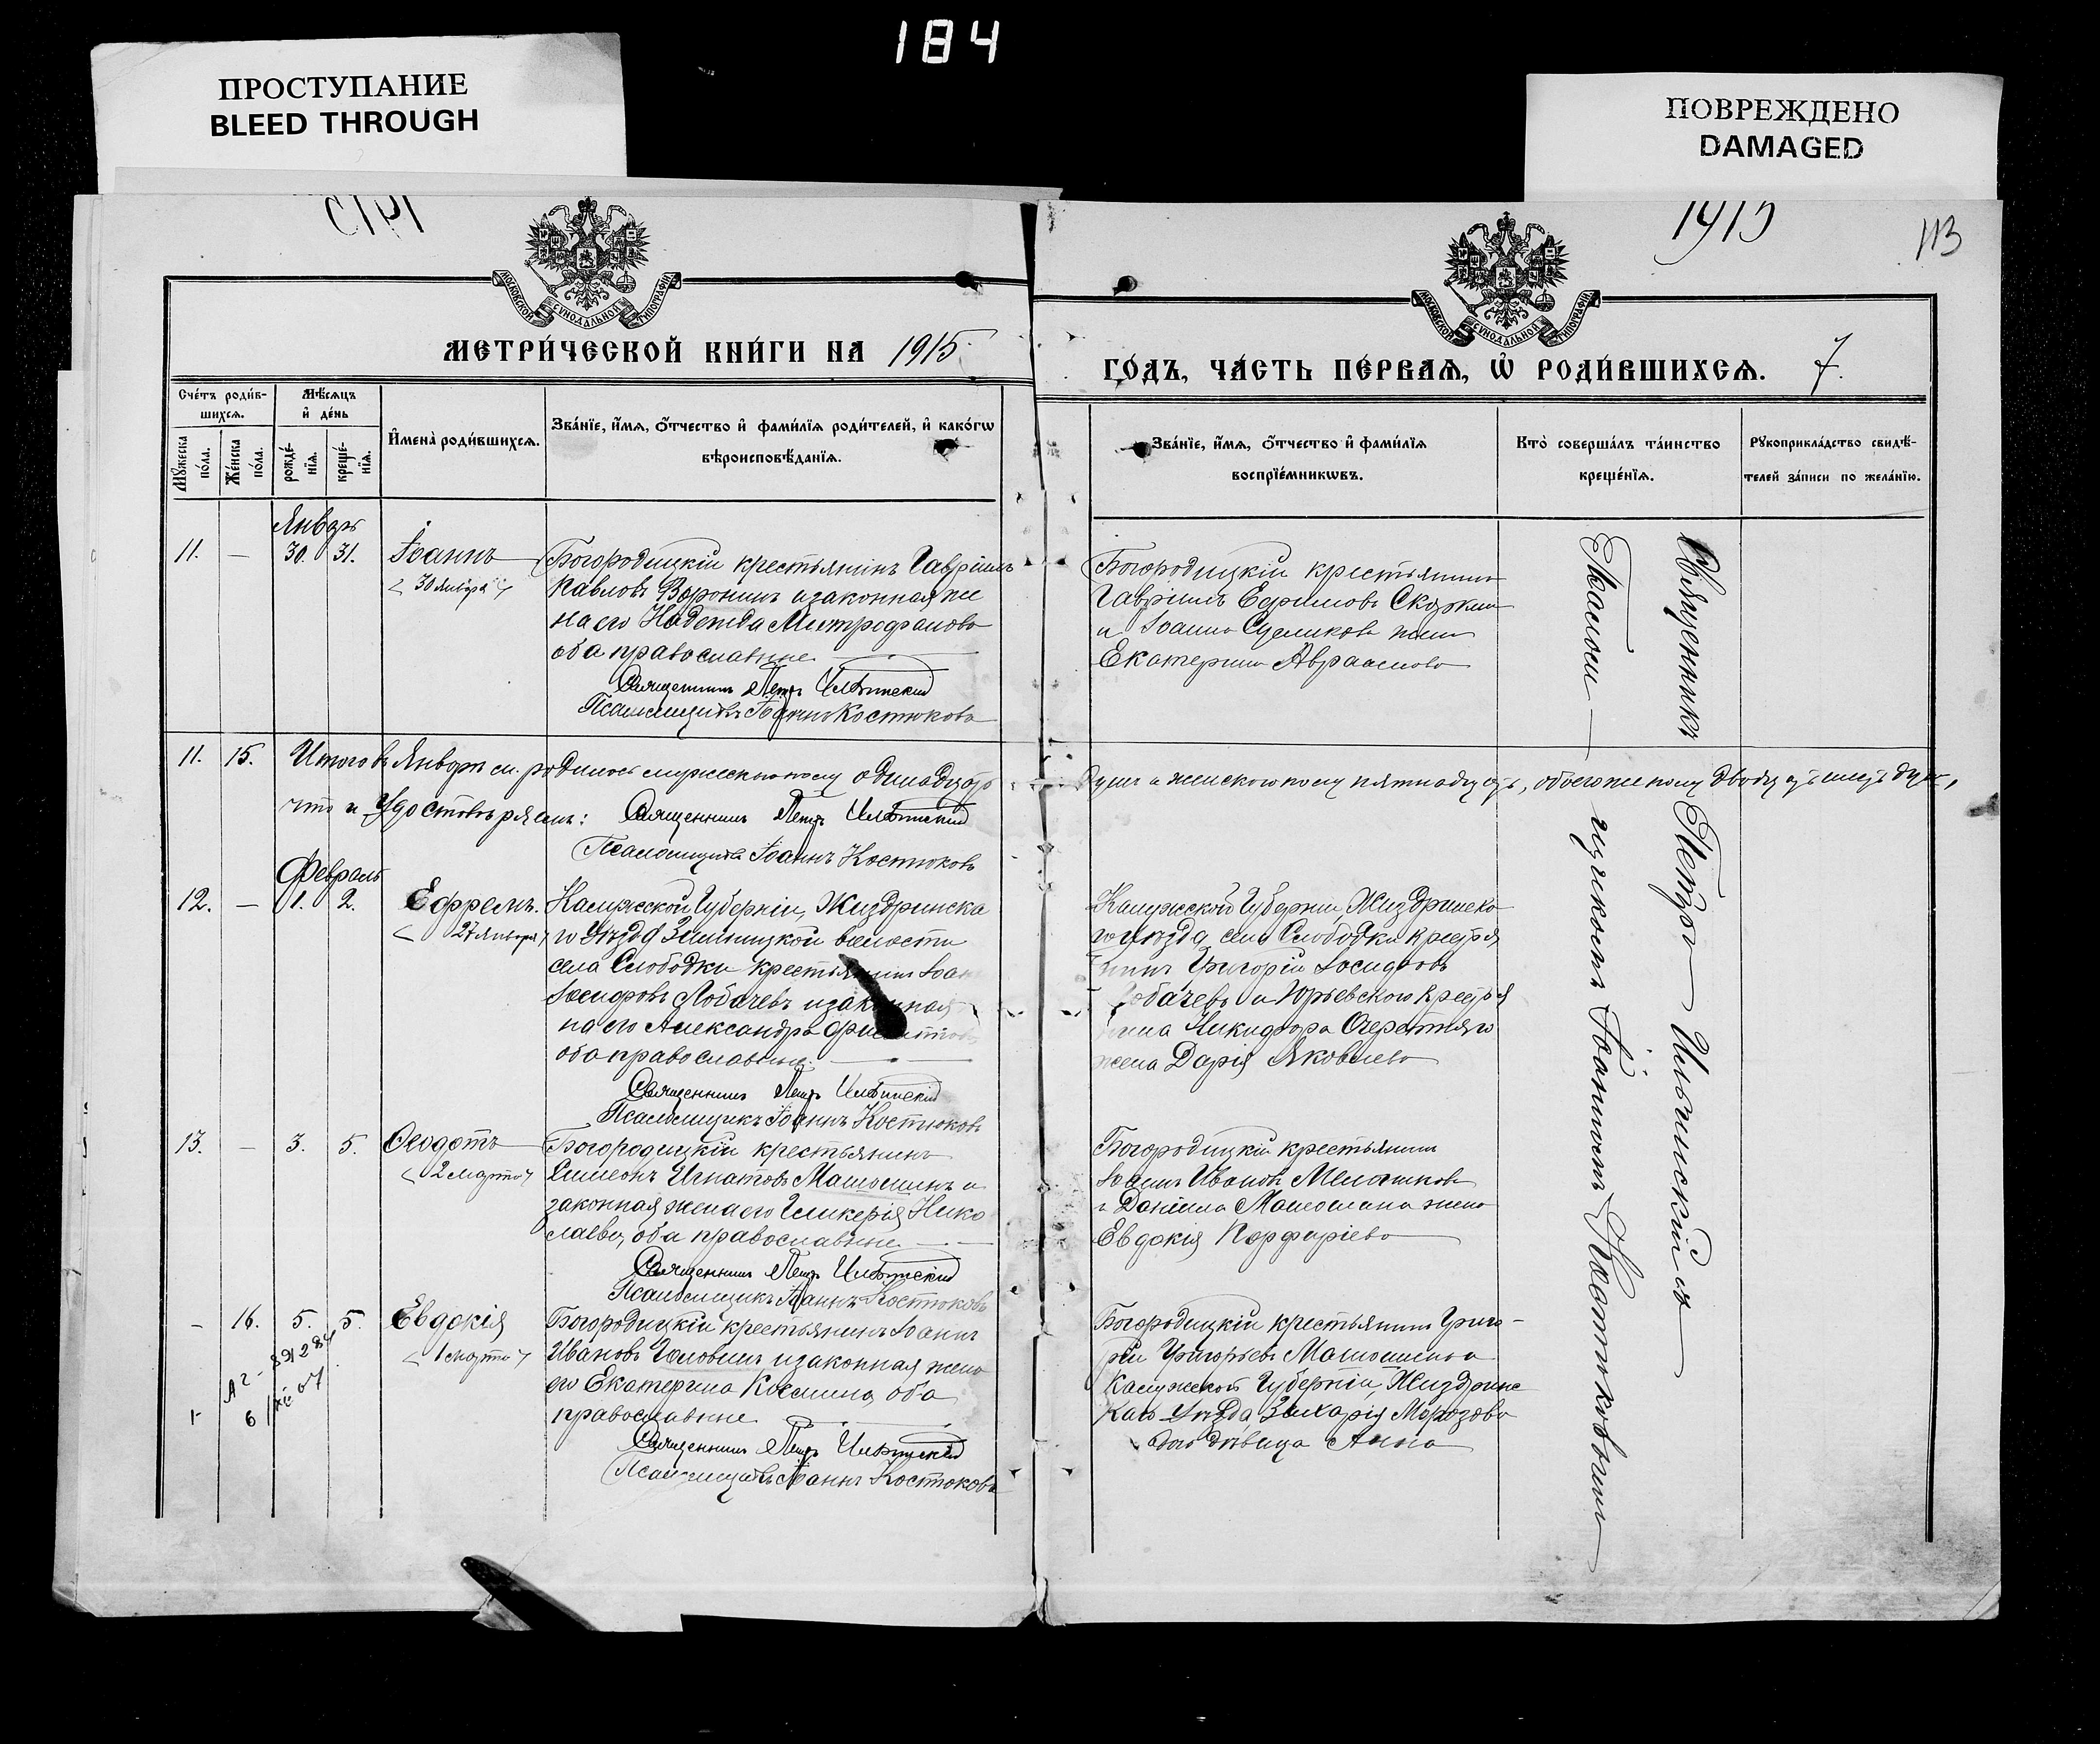 184
ПРОСТУПАНИЕ
BLEED THROUGH
ПОВРЕЖДЕНО
DAMAGED
1915
113
МОСКОВСКОЙ СѴНОДАЛЬНОЙ ТИПОГРАФІИ
МОСКОВСКОЙ СѴНОДАЛЬНОЙ ТИПОГРАФІИ
МЕТРИ́ЧЕСКОЙ КНИ́ГИ НА 1915
ГО́ДЪ, ЧА́СТЬ ПЕ́РВАѦ, Ѡ҆ РОДИ́ВШИХСѦ. 7.
Сче́тъ роди́в-
шихсѧ.
Мѣ́сѧцъ
и҆ де́нь
Мꙋ́жеска
по́ла.
Же́нска
по́ла.
рожде́-
нїѧ.
креще́-
нїѧ.
И҆мена̀ роди́вшихсѧ.
Зва́нїе, и҆́мѧ, ѻ҆́тчество и҆ фами́лїѧ роди́телей, и҆ како́гѡ
вѣроисповѣ́данїѧ.
Зва́нїе, и҆́мѧ, ѻ҆́тчество и҆ фами́лїѧ
воспрїе́мникѡвъ.
Кто̀ соверша́лъ та́инство
креще́нїѧ.
Рꙋкоприкла́дство свидѣ́-
телей за́писи по жела́нїю.
Январь
11. — 30. 31. Іоаннъ
30 января
Богородицкій крестьянинъ Гавріилъ
Павловъ Воронинъ и законная же
на его Надежда Митрофанова
оба православные
Священникъ Петръ Ильинскій
Псаломщикъ Іоаннъ Костюковъ
Богородицкій крестьянинъ
Гавріилъ Ефимовъ
и Іоанна жена
Екатерина Авраамова
11. 15. Итого въ Январѣ м. родилось мужескаго полу одинадцать
душъ а женскаго полу пятнадцать, обоего же полу двадцать шесть душъ,
что и удостовѣряемъ: Священникъ Петръ Ильинскій
Псаломщикъ Іоаннъ Костюковъ
Февраль
12. — 1. 2. Ефремъ.
Января
Калужской Губерніи, Жиздринска
го уѣзда волости
села Слободки крестьянинъ Іоан
Іосифовъ Лобачевъ и законная
на его Александра
оба православные.
Священникъ Петръ Ильинскій
Псаломщикъ Іоаннъ Костюковъ
Калужской Губерніи, Жиздринско
го уѣзда села Слободки крестья
Григорій Іосифовъ
обачевъ и Юрьевского крестья
Никифора
жена Дарія Яковлева
13. — 3. 5. Ѳеодотъ
2 марта
Богородицкій крестьянинъ
Симеонъ Игнатовъ Мамошинъ и
законная жена его Гликерія Нико
лаева, оба православные
Священникъ Петръ Ильинскій
Псаломщикъ Іоаннъ Костюковъ
Богородицкій крестьянинъ
Іоаннъ Ивановъ
и Даніила Мамошина жена
Евдокія Порфиріева
— 16. 5. 5. Евдокія
1 марта
Богородицкій крестьянинъ Іоаннъ
Ивановъ Головинъ и законная жена
его Екатерина Космина, оба
православные
Священникъ Петръ Ильинскій
Псаломщикъ Іоаннъ Костюковъ
Богородицкій крестьянинъ Григо-
рій Григорьевъ Мамошинъ и
Калужской Губерніи, Жиздринс
каго Уѣзда Захарія Морозова
дѣвица Анна
Священникъ Петръ Ильинскій съ
Псаломщикомъ Іоанномъ Костюковымъ